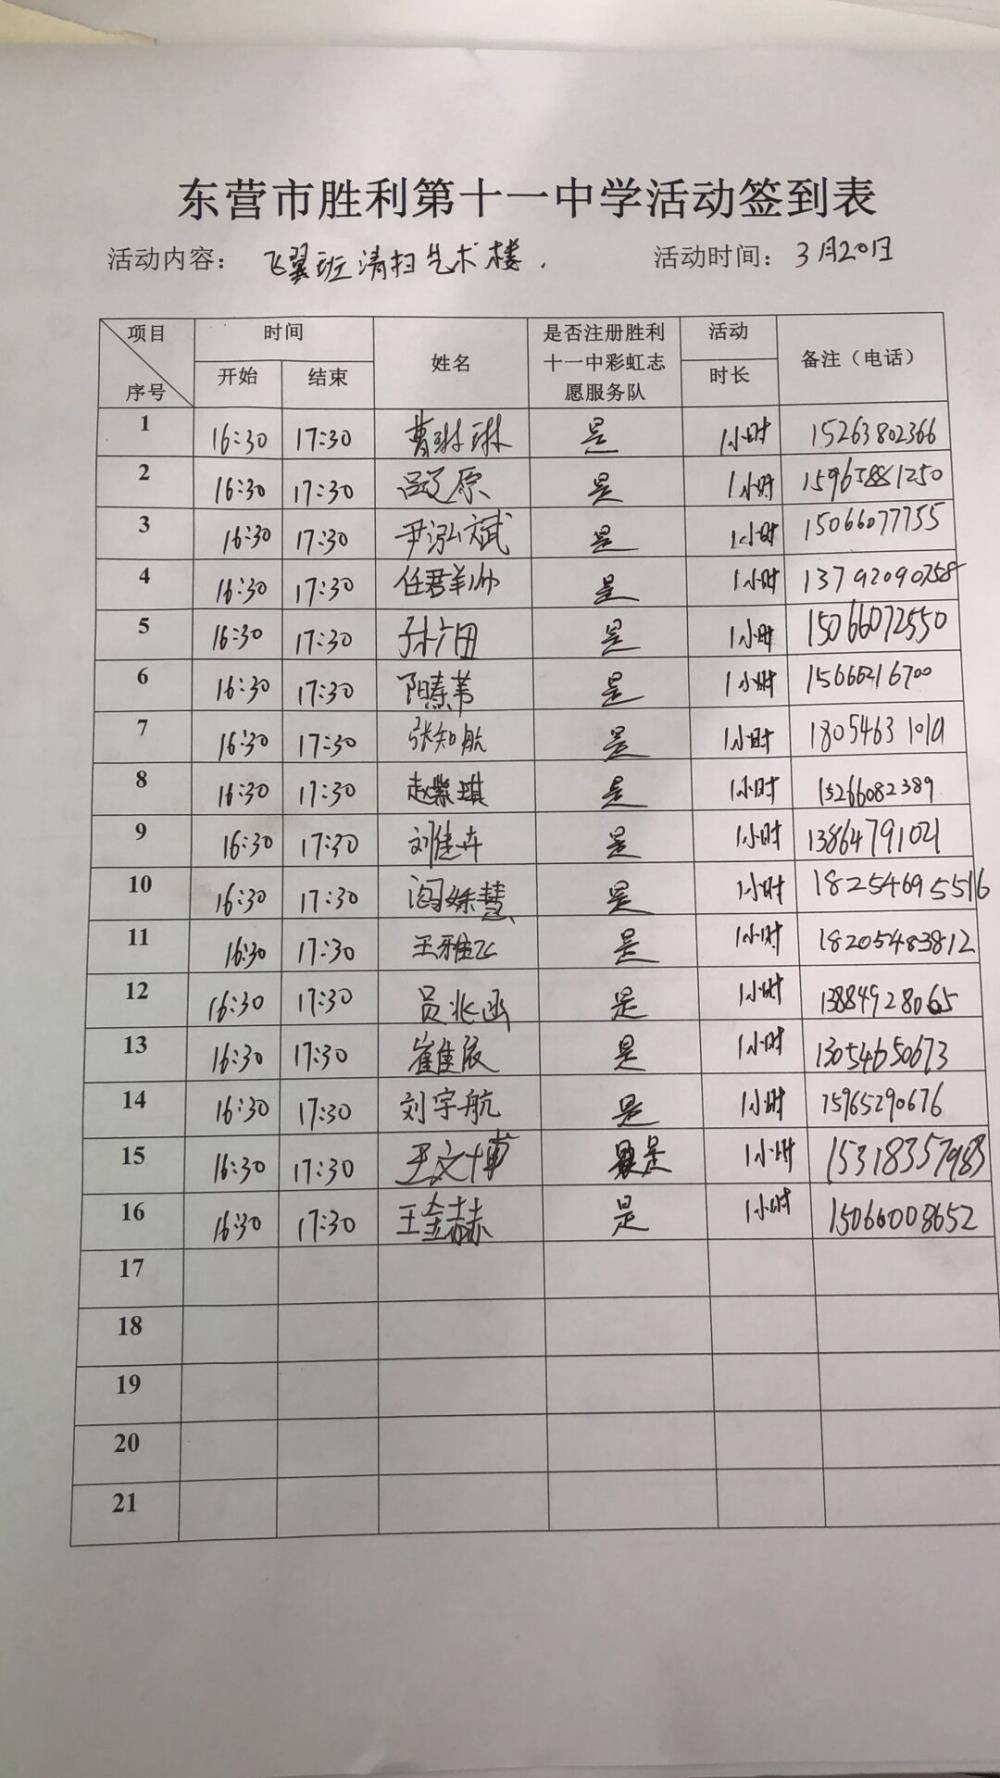 东营市胜利第十一中学活动签到表
活动内容： 飞翼班清扫艺术楼. 活动时间：3月20日
项目 时间 姓名 是否注册胜利十一中彩虹志愿服务队 活动 备注（电话）
序号 开始 结束 时长
1 16:30 17:30 曹琳琳 是 1小时 15263802366
2 16:30 17:30 原 是 1小时 15965881250
3 16:30 17:30 尹泓斌 是 1小时 15066077755
4 16:30 17:30 任君 帅 是 1小时 13792090758
5 16:30 17:30 孙 田 是 1小时 15066072550
6 16:30 17:30 苇 是 1小时 15666216700
7 16:30 17:30 张知航 是 1小时 18054631019
8 16:30 17:30 赵紫琪 是 1小时 15266082389
9 16:30 17:30 刘佳卉 是 1小时 13864791021
10 16:30 17:30 阎姝慧 是 1小时 18254695516
11 16:30 17:30 王雅飞 是 1小时 18205483812
12 16:30 17:30 员兆函 是 1小时 13884928065
13 16:30 17:30 崔佳依 是 1小时 13054650673
14 16:30 17:30 刘宇航 是 1小时 15965290676
15 16:30 17:30 王文博 是 1小时 15318357983
16 16:30 17:30 王金赫 是 1小时 15066008652
17
18
19
20
21